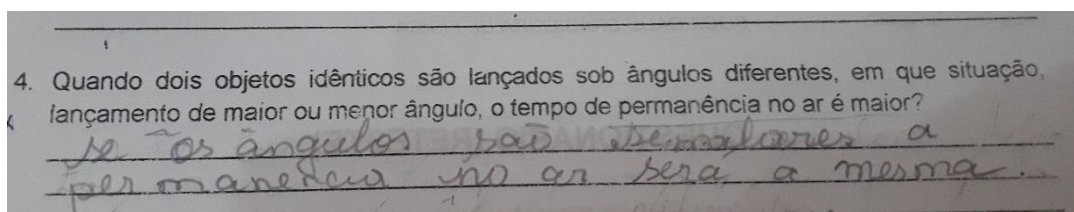 4. Quando dois objetos idênticos são lançados sob ângulos diferentes, em que situação,
lançamento de maior ou menor ângulo, o tempo de permanência no ar é maior?
se os ângulos são a
permanência no ar será a mesma.